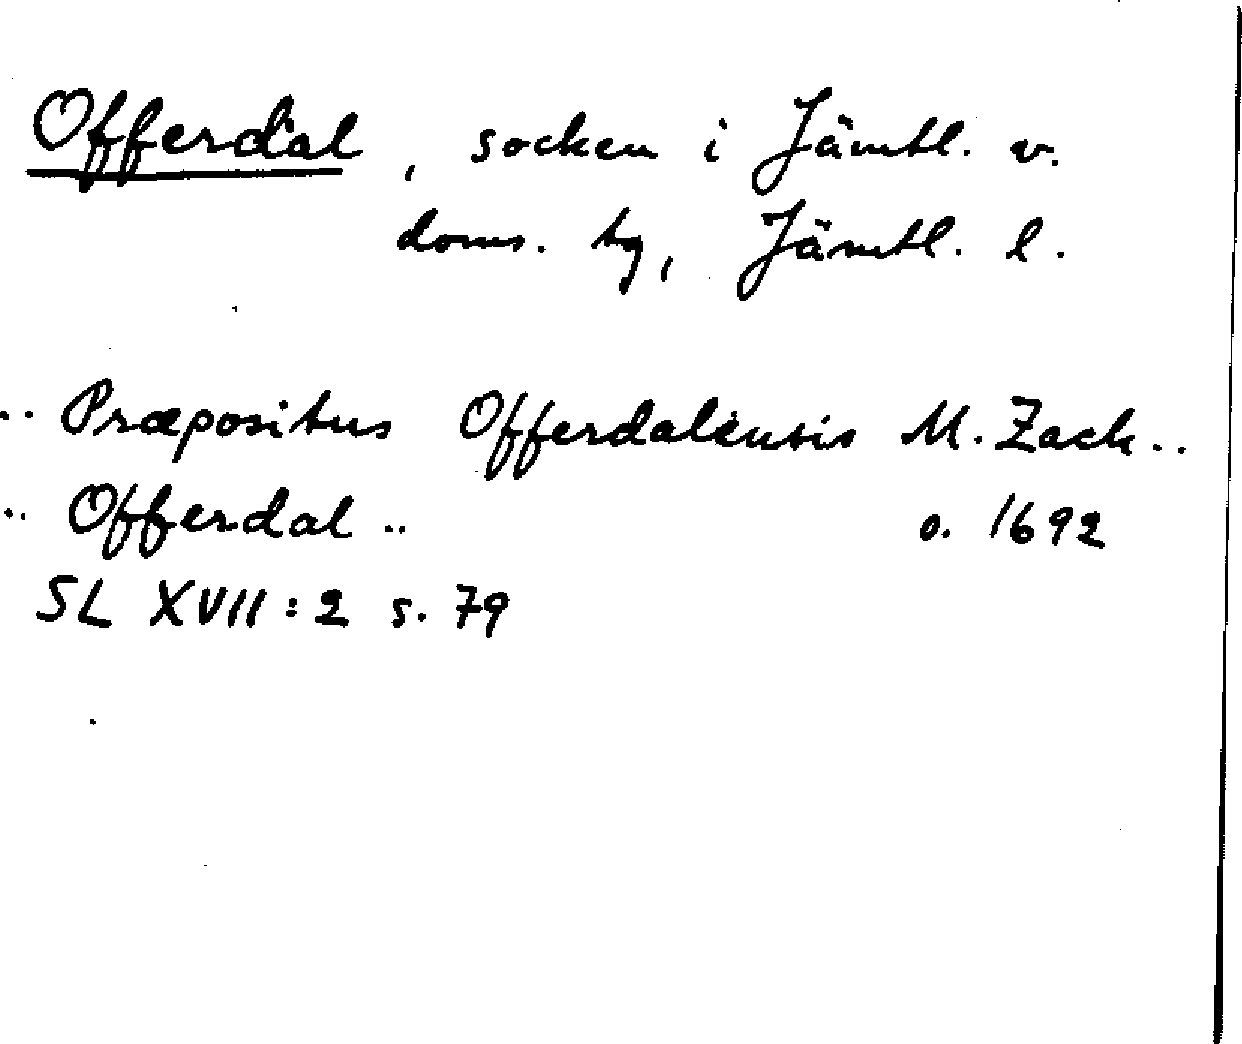 Offerdal, socken i Jämtl. v.
doms. tg, Jämtl. l.
.. Præpositus Offerdalensis M. Zach..
.. Offerdal .. o. 1692
SL XVII:2 s. 79